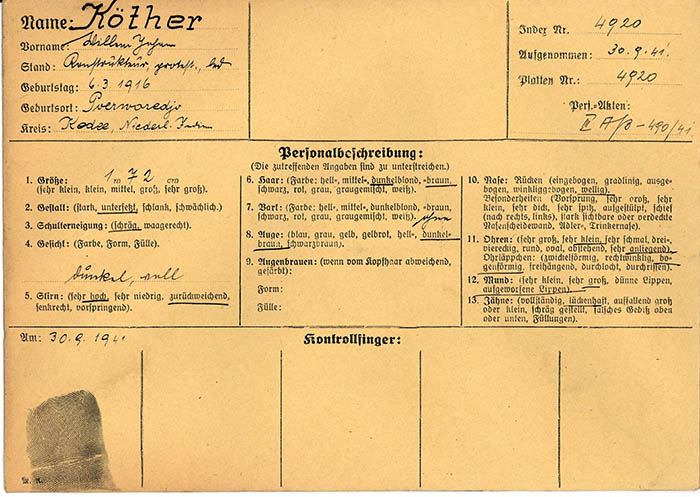 Name: Köther
Vorname: Willem Johan
Stand: Konstrukteur, protest., led
Geburtstag: 6.3.1916
Geburtsort: Poerworedjo
Kreis: Kedoe, Niederl. Indien
Index Nr. 4920
Aufgenommen: 30.9.41.
Platten Nr.: 4920
Pers.-Akten:
490/41
Personalbeschreibung:
(Die zutreffenden Angaben sind zu unterstreichen.)
1. Größe: 1 m 72 cm
(sehr klein, klein, mittel, groß, sehr groß).
2. Gestalt: (stark, untersetzt, schlank, schwächlich.)
3. Schulterneigung: (schräg, waagerecht).
4. Gesicht: (Farbe, Form, Fülle).
dunkel, voll
5. Stirn: (sehr hoch, sehr niedrig, zurückweichend,
senkrecht, vorspringend).
6. Haar: (Farbe: hell-, mittel-, dunkelblond, -braun,
schwarz, rot, grau, graugemischt, weiß).
7. Bart: (Farbe: hell-, mittel-, dunkelblond, -braun,
schwarz, rot, grau, graugemischt, weiß). ohne
8. Auge: (blau, grau, gelb, gelbrot, hell-, dunkel-
braun, schwarzbraun).
9. Augenbrauen: (wenn vom Kopfhaar abweichend,
gefärbt):
Form:
Fülle:
10. Nase: Rücken (eingebogen, gradlinig, ausge-
bogen, winkliggebogen, wellig).
Besonderheiten (Vorsprung, sehr groß, sehr
klein, sehr dick, sehr spitz, aufgestülpt, schief
(nach rechts, links), stark sichtbare oder verdeckte
Nasenscheidewand, Adler-, Trinkernase).
11. Ohren: (sehr groß, sehr klein, sehr schmal, drei-
viereckig, rund, oval, abstehend, sehr anliegend).
Ohrläppchen: (zwickelförmig, rechtwinklig, bo-
genförmig, freihängend, durchlocht, durchrissen).
12. Mund: (sehr klein, sehr groß, dünne Lippen,
aufgeworfene Lippen).
13. Zähne: (vollständig, lückenhaft, auffallend groß
oder klein, schräg gestellt, falsches Gebiß oben
oder unten, Füllungen).
Am: 30.9.1941
Kontrollfinger: